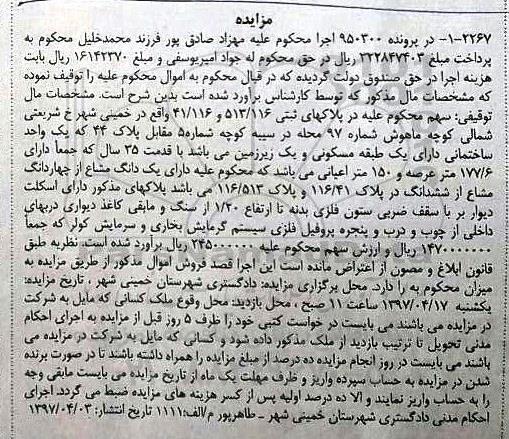 مزایده
۱-۲۲۶۷- در پرونده ۹۵۰۳۰۰ اجرا محکوم علیه مهزاد صادق پور فرزند محمدخلیل محکوم به
پرداخت مبلغ ۳۲۲۸۴۷۴۰۳ ریال در حق محکوم له جواد امیریوسفی و مبلغ ۱۶۱۴۲۳۷۰ ریال بابت
هزینه اجرا در حق صندوق دولت گردیده که در قبال محکوم به اموال محکوم علیه را توقیف نموده
که مشخصات مال مذکور که توسط کارشناس برآورد شده است بدین شرح است. مشخصات مال
توقیفی: سهم محکوم علیه در پلاکهای ثبتی ۵۱۳/۱۱۶ و ۴۱/۱۱۶ واقع در خمینی شهر خ شریعتی
شمالی کوچه ماهوش شماره ۹۷ محله در سیبه کوچه شماره۵ مقابل پلاک ۴۴ که یک واحد
ساختمانی دارای یک طبقه مسکونی و یک زیرزمین می باشد با قدمت ۳۵ سال که جمعا دارای
۱۷۷/۶ متر عرصه و ۱۵۰ متر اعیانی می باشد که محکوم علیه دارای یک دانگ مشاع از چهاردانگ
مشاع از ششدانگ در پلاک ۱۱۶/۴۱ و پلاک ۱۱۶/۵۱۳ می باشد پلاکهای مذکور دارای اسکلت
دیوار بر با سقف ضربی ستون فلزی بدنه تا ارتفاع ۱/۲۰ از سنگ و مابقی کاغذ دیواری دربهای
داخلی از چوب و درب و پنجره پروفیل فلزی سیستم گرمایش بخاری و سرمایش کولر که جمعاً
۱۴۷۰۰۰۰۰۰۰ ریال و ارزش سهم محکوم علیه ۲۴۵۰۰۰۰۰۰ ریال برآورد شده است. نظریه طبق
قانون ابلاغ و مصون از اعتراض مانده است این اجرا قصد فروش اموال مذکور از طریق مزایده به
میزان محکوم به را دارد. محل برگزاری مزایده: دادگستری شهرستان خمینی شهر ، تاریخ مزایده:
یکشنبه ۱۳۹۷/۰۴/۱۷ ساعت ۱۱ صبح ، محل بازدید: محل وقوع ملک کسانی که مایل به شرکت
در مزایده می باشند می بایست در خواست کتبی خود را ظرف ۵ روز قبل از مزایده به اجرای احکام
مدنی تحویل تا ترتیب بازدید از ملک مذکور داده شود و کسانی که مایل به شرکت در مزایده می
باشند می بایست در روز انجام مزایده ده درصد از مبلغ مزایده را همراه داشته باشند تا در صورت برنده
شدن در مزایده به حساب سپرده واریز و ظرف مهلت یک ماه از تاریخ مزایده می بایست مابقی وجه
را به حساب واریز نمایند و الا ده درصد اولیه پس از کسر هزینه های مزایده ضبط می گردد. اجرای
احکام مدنی دادگستری شهرستان خمینی شهر ـ طاهرپور م/الف:۱۱۱۱ تاریخ انتشار: ۱۳۹۷/۰۴/۰۳